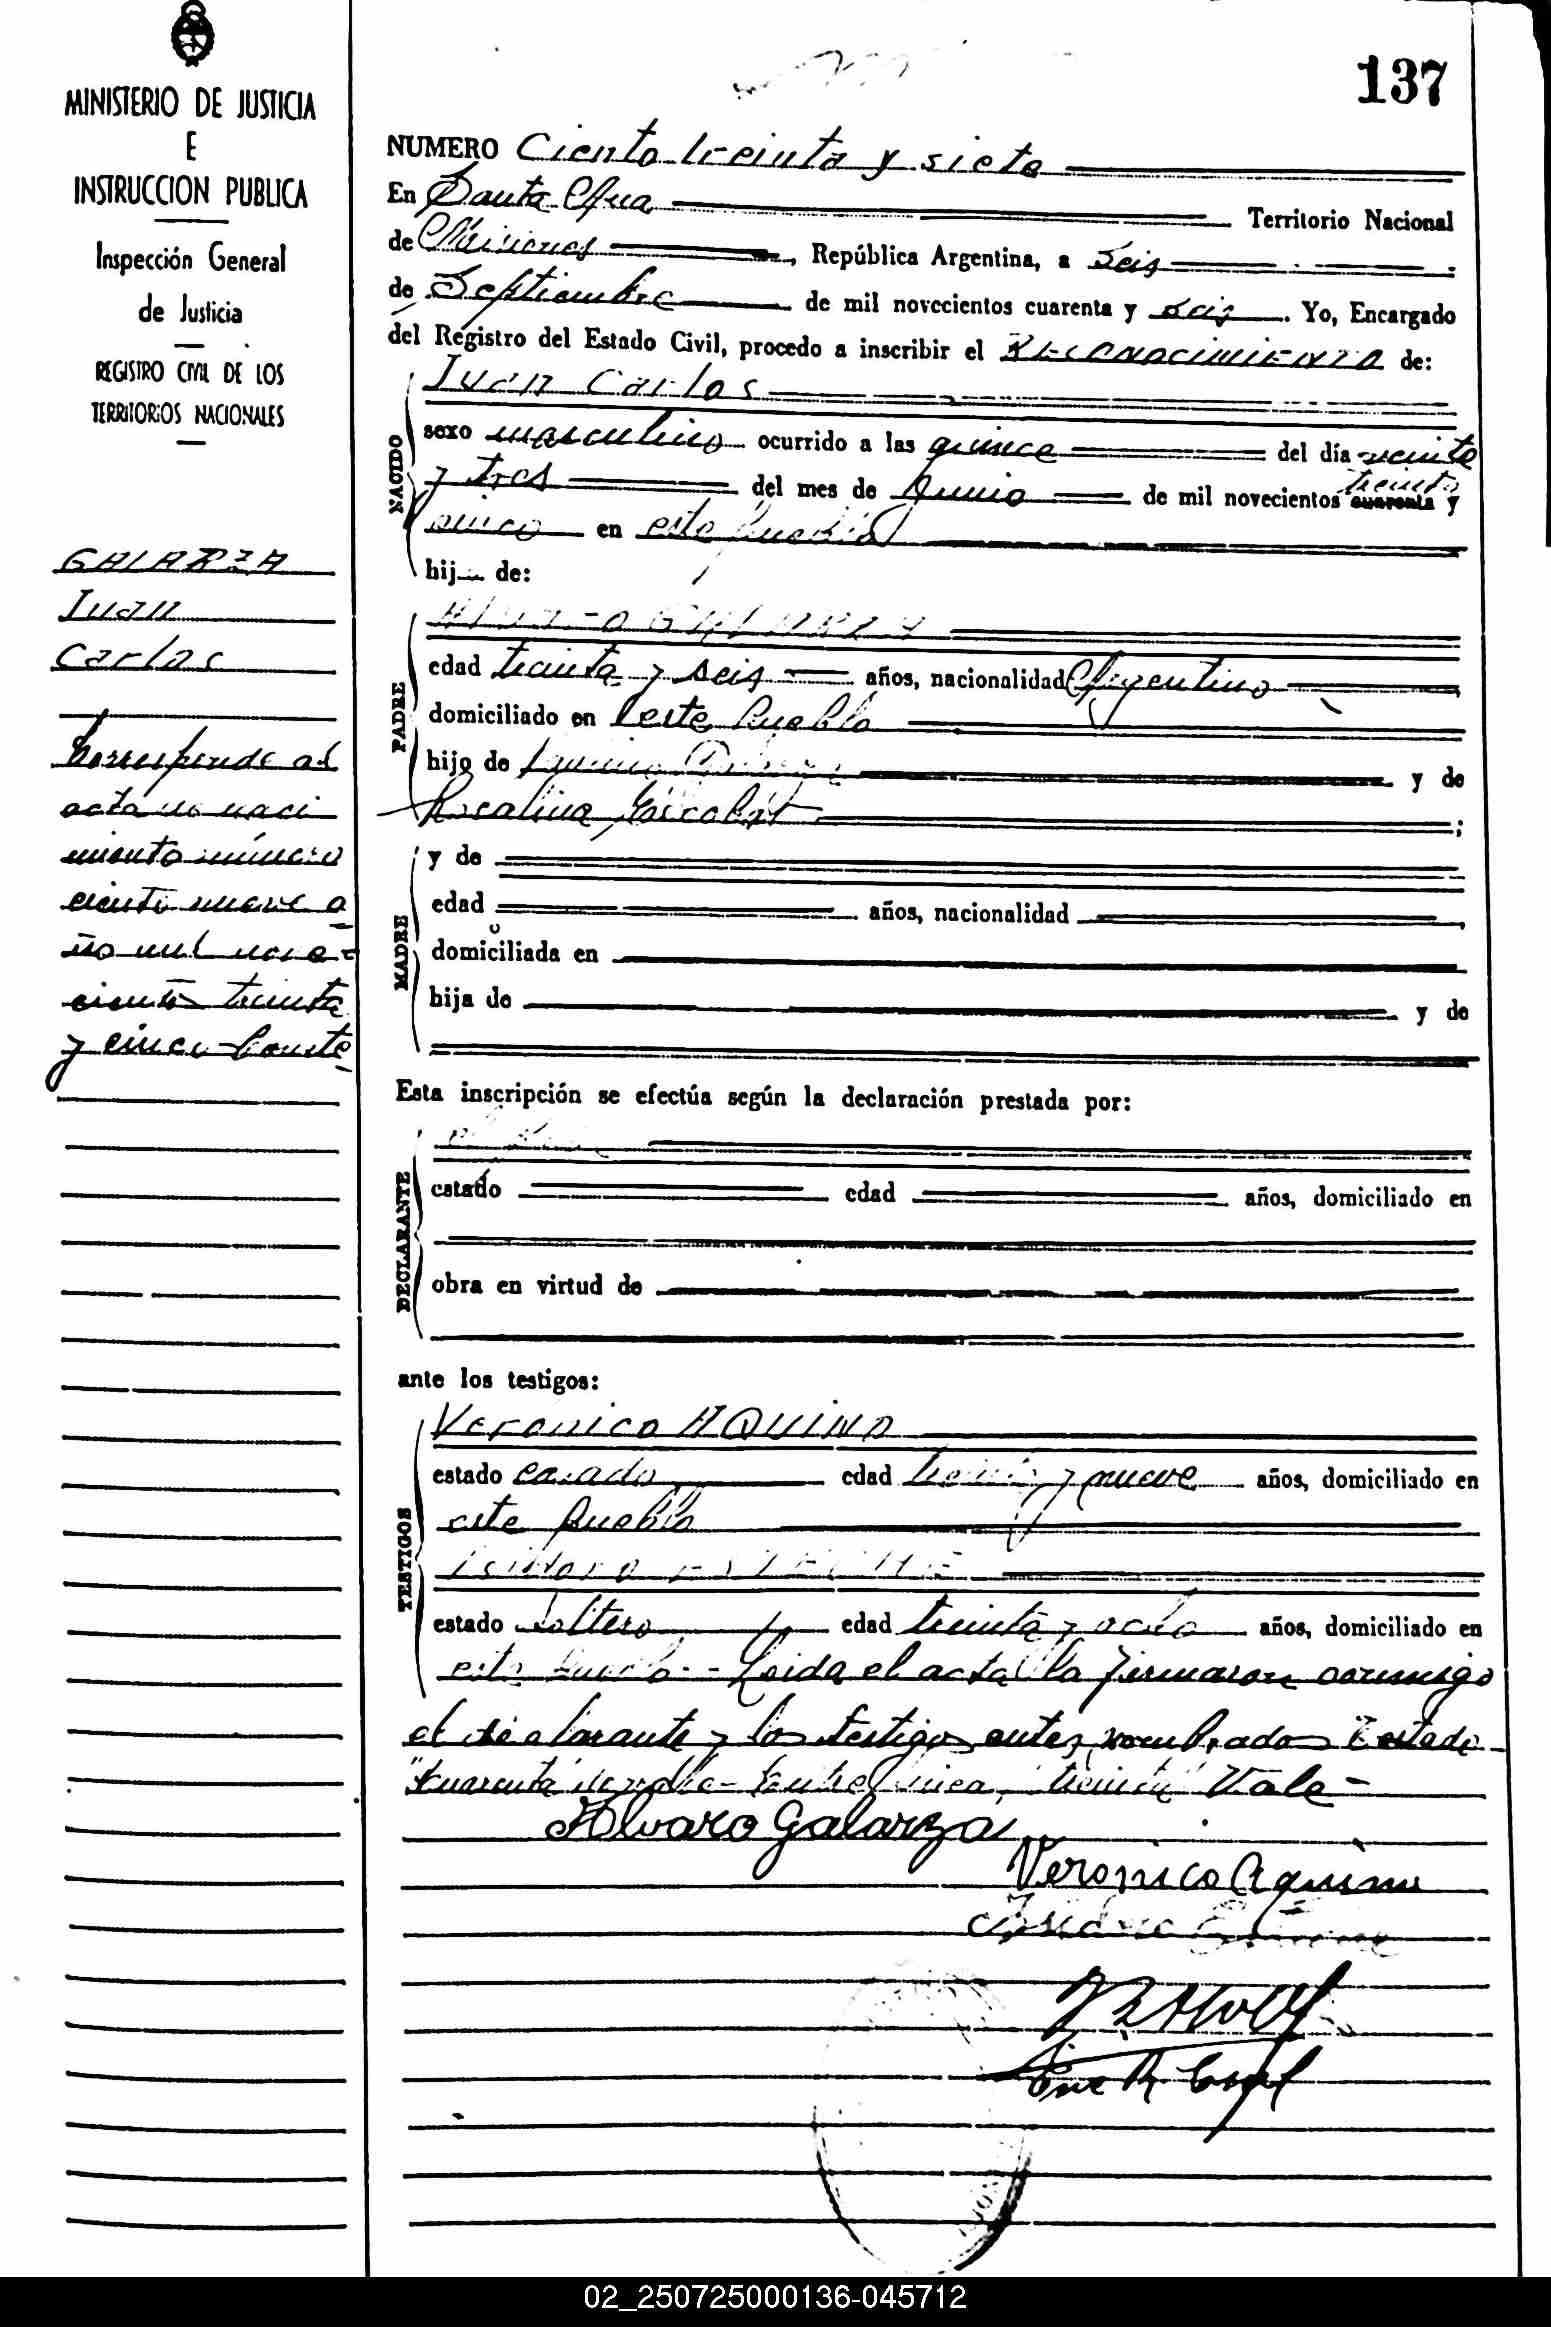 MINISTERIO DE JUSTICIA
E
INSTRUCCION PUBLICA
Inspección General
de Justicia
REGISTRO CIVIL DE LOS
TERRITORIOS NACIONALES
GALARZA
Juan
Carlos
Corresponde al
acta de naci
miento número
ciento nueve a
ño mil nove-
ciento treinta
y cinco Conste
137
NUMERO Ciento treinta y siete
En Santa Ana Territorio Nacional
de Misiones, República Argentina, a Seis
de Septiembre de mil novecientos cuarenta y seis. Yo, Encargado
del Registro del Estado Civil, procedo a inscribir el RECONOCIMIENTO de:
Juan Carlos
NACIDO
sexo masculino ocurrido a las quince del día veinte
y tres del mes de Junio de mil novecientos treinta cuarenta y
cinco en este Pueblo
hij de:
PADRE
Alvaro GALARZA
edad treinta y seis años, nacionalidad Argentino
domiciliado en este Pueblo
hijo de y de
Rosalina Escobar ;
MADRE
y de
edad años, nacionalidad
domiciliada en
hija de y de
Esta inscripción se efectúa según la declaración prestada por:
DECLARANTE
el
estado edad años, domiciliado en
obra en virtud de
ante los testigos:
TESTIGOS
Veronico AQUINO
estado casado edad treinta y nueve años, domiciliado en
este Pueblo
Isidoro
estado soltero edad treinta y ocho años, domiciliado en
este Pueblo.- Leida el acta la firmaron conmigo
el declarante y los testigos antes nombrados Testado
"cuarenta" no vale - Entre linea, "treinta" Vale -
Alvaro Galarza
Veronico Aquino
Isidoro
02_250725000136-045712